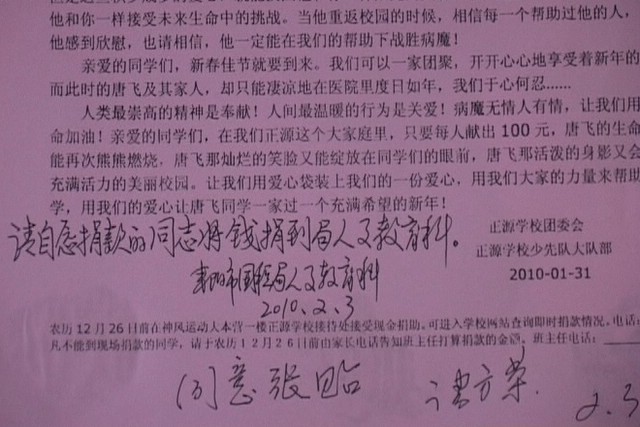 他和你一样接受未来生命中的挑战。当他重返校园的时候，相信每一个帮助过他的人，
他感到欣慰，也请相信，他一定能在我们的帮助下战胜病魔！
亲爱的同学们，新春佳节就要到来。我们可以一家团聚，开开心心地享受着新年的
而此时的唐飞及其家人，却只能凄凉地在医院里度日如年，我们于心何忍......
人类最崇高的精神是奉献！人间最温暖的行为是关爱！病魔无情人有情，让我们用
命加油！亲爱的同学们，在我们正源这个大家庭里，只要每人献出 100 元，唐飞的生命
能再次熊熊燃烧，唐飞那灿烂的笑脸又能绽放在同学们的眼前，唐飞那活泼的身影又会
充满活力的美丽校园。让我们用爱心袋装上我们的一份爱心，用我们大家的力量来帮助
学，用我们的爱心让唐飞同学一家过一个充满希望的新年！
正源学校团委会
请自愿捐款的同志将钱捐到局人事教育科。
正源学校少先队大队部
耒阳市国税局人事教育科
2010-01-31
2010.2.3
农历 12 月 26 日前在神风运动人本营一楼正源学校接待处接受现金捐助。可进入学校网站查询即时捐款情况。电话：
凡不能到现场捐款的同学，请于农历 12 月 26 日前由家长电话告知班主任打算捐款的金额，班主任电话：
同意 张
2.3